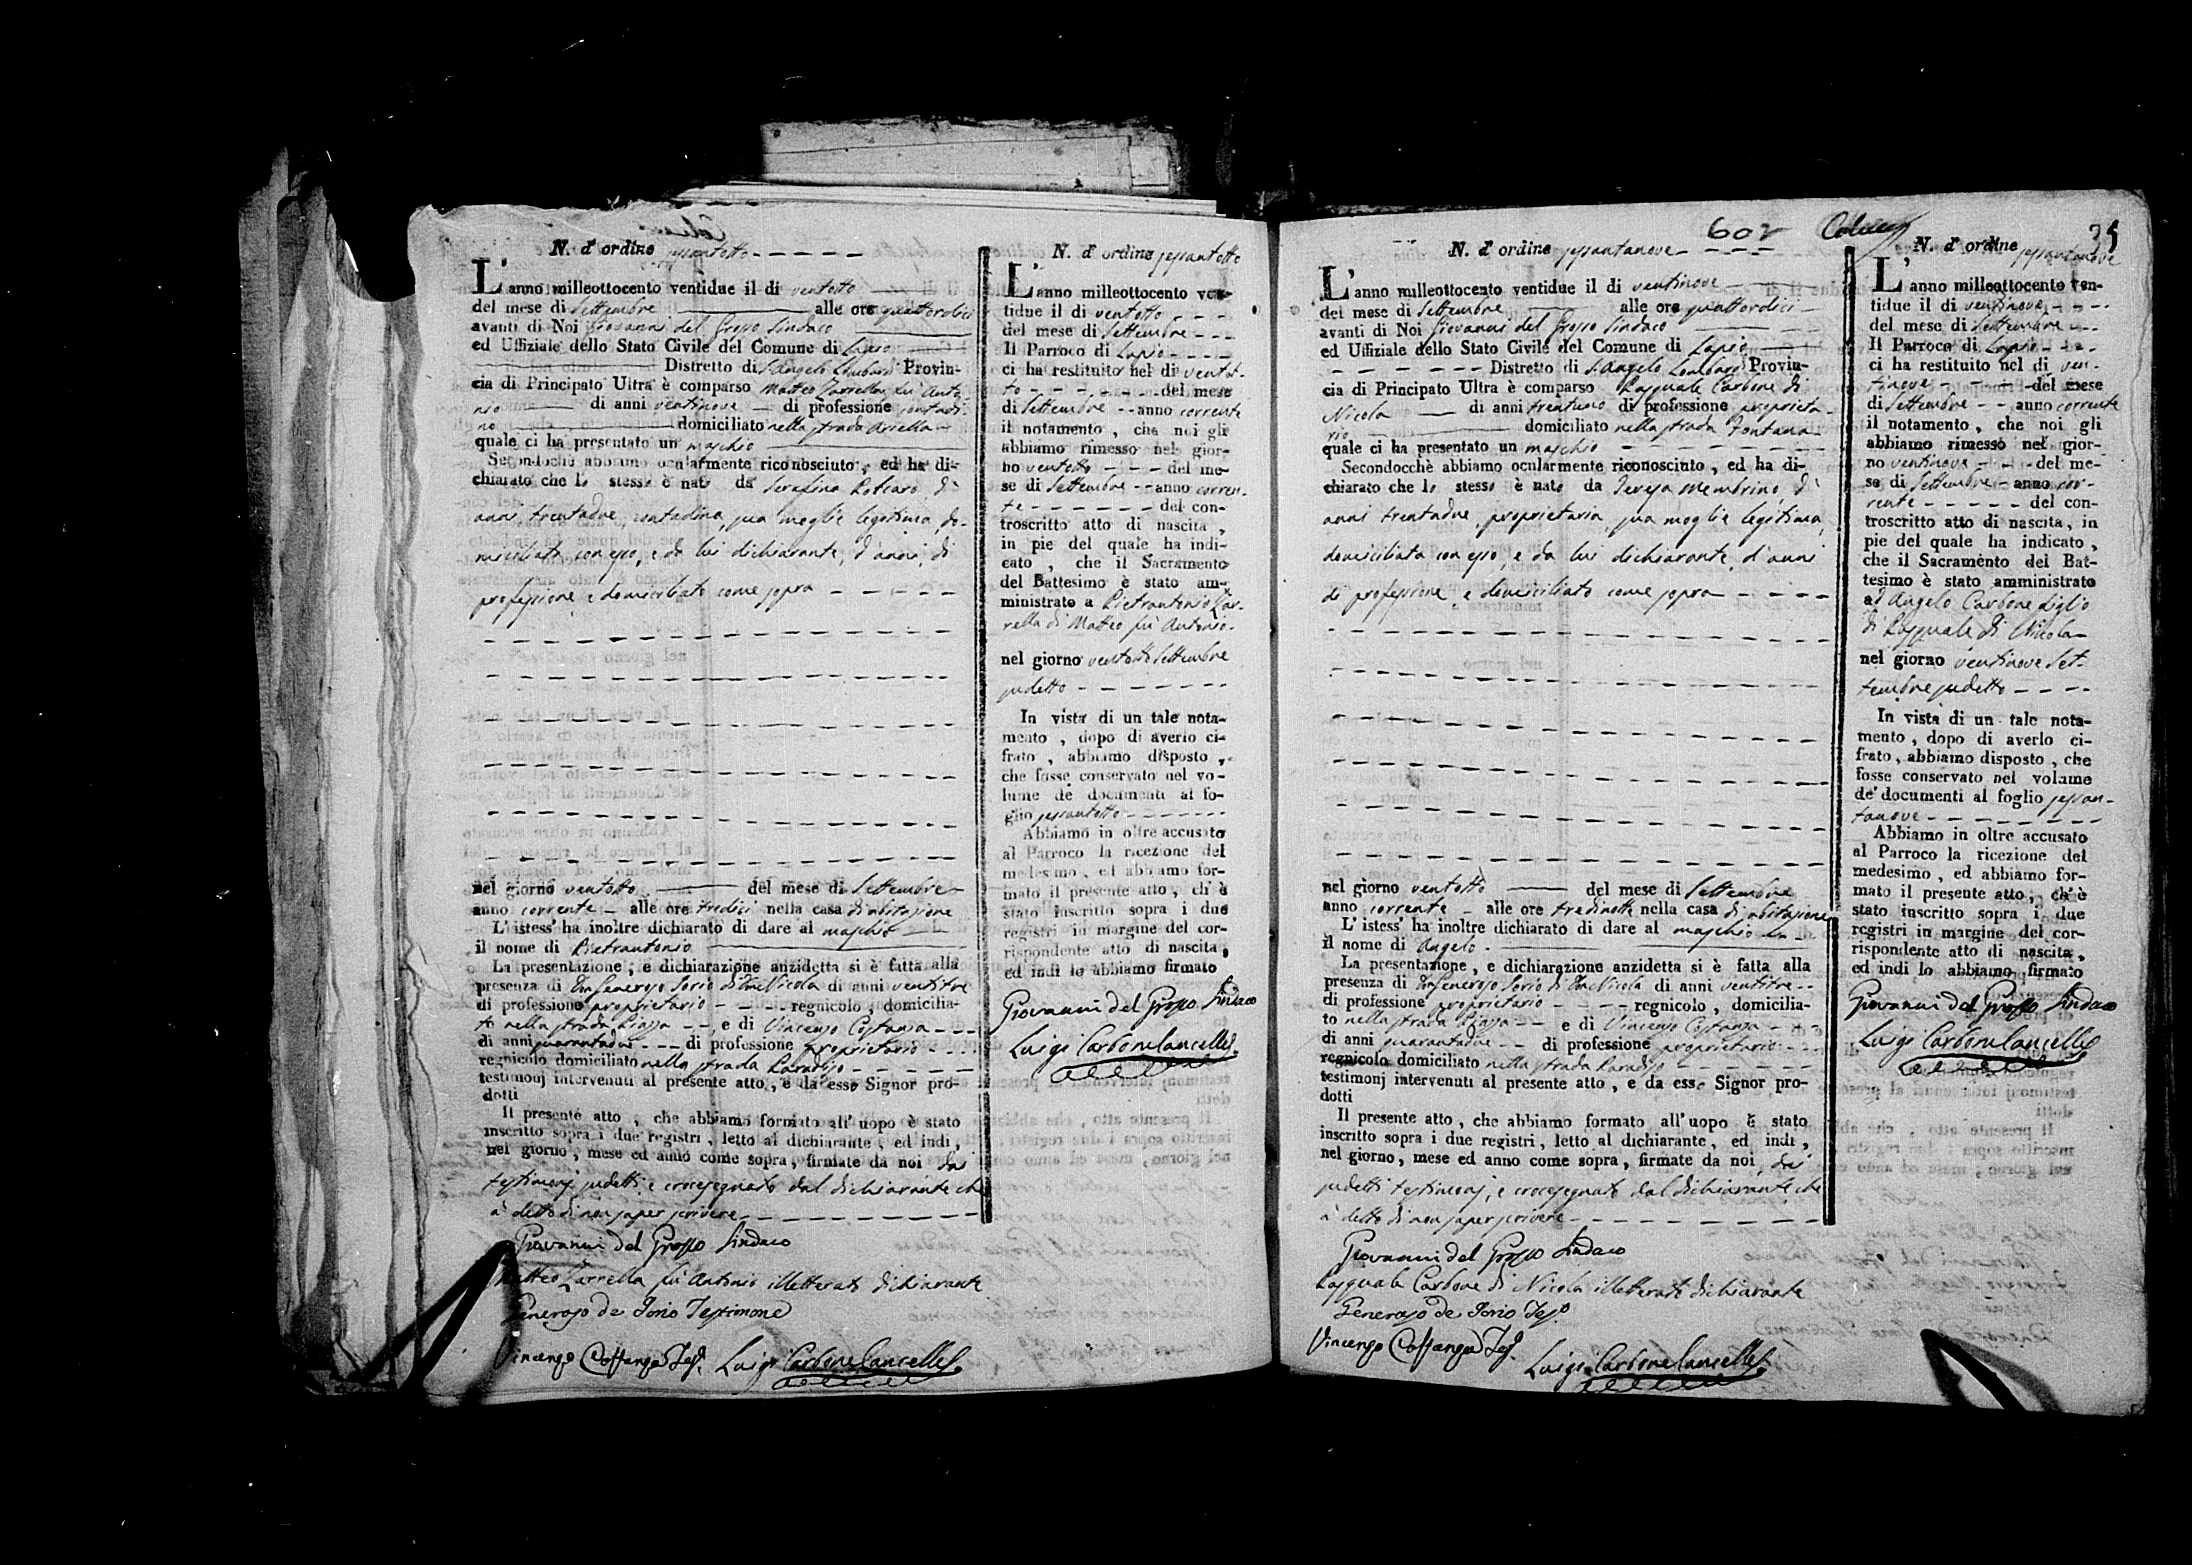 N. d'ordine sessantotto
L'anno milleottocento ventidue il di ventotto
del mese di Settembre alle ore quattordici
avanti di Noi Giovanni del Grosso Sindaco
ed Uffiziale dello Stato Civile del Comune di Lapio
Distretto di S. Angelo Lombardi Provin-
cia di Principato Ultra è comparso Matteo Zarrella fù Anto-
nio di anni ventinove di professione contadi-
no domiciliato nella strada Ariella
quale ci ha presentato un maschio
Secondochè abbiamo ocularmente riconosciuto, ed ha di-
chiarato che lo stesso è nato da Serafina Policaro, di
anni trentadue, contadina, sua moglie legitima, do-
miciliata con esso, e da lui dichiarante, d'anni, di
professione, e domiciliato come sopra
nel giorno ventotto del mese di Settembre
anno corrente alle ore tredici nella casa di abitazione
L'istess' ha inoltre dichiarato di dare al maschio
il nome di Pietrantonio
La presentazione, e dichiarazione anzidetta si è fatta alla
presenza di Generoso Iorio di Nicola di anni ventitre
di professione proprietario regnicolo, domicilia-
to nella strada Piazza e di Vincenzo Costanza
di anni quarantadue di professione proprietario
regnicolo domiciliato nella strada Paradiso
testimonj intervenuti al presente atto, e da esso Signor pro-
dotti
Il presente atto, che abbiamo formato all'uopo è stato
inscritto sopra i due registri, letto al dichiarante, ed indi,
nel giorno, mese ed anno come sopra, firmate da noi dai
testimonj sudetti, e crocesegnato dal dichiarante che
à detto di non saper scrivere
Giovanni del Grosso Sindaco
Matteo Zarrella fù Antonio illetterato dichiarante
Generoso de Iorio Testimone
Vincenzo Costanza Tes.
Luigi Carbone Cancell.
N. d'ordine sessantotto
L'anno milleottocento ven-
tidue il di ventotto
del mese di Settembre
Il Parroco di Lapio
ci ha restituito nel di ventot-
to del mese
di Settembre anno corrente
il notamento, che noi gli
abbiamo rimesso nel gior-
no ventotto del me-
se di Settembre anno corren-
te del con-
troscritto atto di nascita,
in pie del quale ha indi-
cato, che il Sacramento
del Battesimo è stato am-
ministrato a Pietrantonio Zar-
rella di Matteo fù Antonio
nel giorno ventotto Settembre
sudetto
In vista di un tale nota-
mento, dopo di averlo ci-
frato, abbiamo disposto,
che fosse conservato nel vo-
lume de' documenti al fo-
glio sessantotto
Abbiamo in oltre accusato
al Parroco la ricezione del
medesimo, ed abbiamo for-
mato il presente atto, ch'è
stato inscritto sopra i due
registri in margine del cor-
rispondente atto di nascita,
ed indi lo abbiamo firmato
Giovanni del Grosso Sindaco
Luigi Carbone Cancell.
602
35
N. d'ordine sessantanove
L'anno milleottocento ventidue il di ventinove
del mese di Settembre alle ore quattordici
avanti di Noi Giovanni del Grosso Sindaco
ed Uffiziale dello Stato Civile del Comune di Lapio
Distretto di S. Angelo Lombardi Provin-
cia di Principato Ultra è comparso Pasquale Carbone di
Nicola di anni trentuno di professione proprieta-
rio domiciliato nella strada Fontana
quale ci ha presentato un maschio
Secondocchè abbiamo ocularmente riconosciuto, ed ha di-
chiarato che lo stesso è nato da Teresa Membrino, di
anni trentadue, proprietaria, sua moglie legitima,
domiciliata con esso, e da lui dichiarante, d'anni
di professione, e domiciliato come sopra
nel giorno ventotto del mese di Settembre
anno corrente alle ore tredinotte nella casa di abitazione
L'istess' ha inoltre dichiarato di dare al maschio
il nome di Angelo
La presentazione, e dichiarazione anzidetta si è fatta alla
presenza di Generoso Iorio di Nicola di anni ventitre
di professione proprietario regnicolo, domicilia-
to nella strada Piazza e di Vincenzo Costanza
di anni quarantadue di professione proprietario
regnicolo domiciliato nella strada Paradiso
testimonj intervenuti al presente atto, e da esso Signor pro-
dotti
Il presente atto, che abbiamo formato all'uopo è stato
inscritto sopra i due registri, letto al dichiarante, ed indi,
nel giorno, mese ed anno come sopra, firmate da noi, dai
sudetti testimonj, e crocesegnato dal dichiarante che
à detto di non saper scrivere
Giovanni del Grosso Sindaco
Pasquale Carbone di Nicola illetterato dichiarante
Generoso de Iorio Tes.
Vincenzo Costanza Tes.
Luigi Carbone Cancell.
N. d'ordine sessantanove
L'anno milleottocento ven-
tidue il di ventinove
del mese di Settembre
Il Parroco di Lapio
ci ha restituito nel di ven-
tinove del mese
di Settembre anno corrente
il notamento, che noi gli
abbiamo rimesso nel gior-
no ventinove del me-
se di Settembre anno cor-
rente del con-
troscritto atto di nascita, in
pie del quale ha indicato,
che il Sacramento del Bat-
tesimo è stato amministrato
ad Angelo Carbone figlio
di Pasquale di Nicola
nel giorno ventinove Set-
tembre sudetto
In vista di un tale nota-
mento, dopo di averlo ci-
frato, abbiamo disposto, che
fosse conservato nel volume
de' documenti al foglio sessan-
tanove
Abbiamo in oltre accusato
al Parroco la ricezione del
medesimo, ed abbiamo for-
mato il presente atto, ch'è
stato inscritto sopra i due
registri in margine del cor-
rispondente atto di nascita,
ed indi lo abbiamo firmato
Giovanni del Grosso Sindaco
Luigi Carbone Cancell.